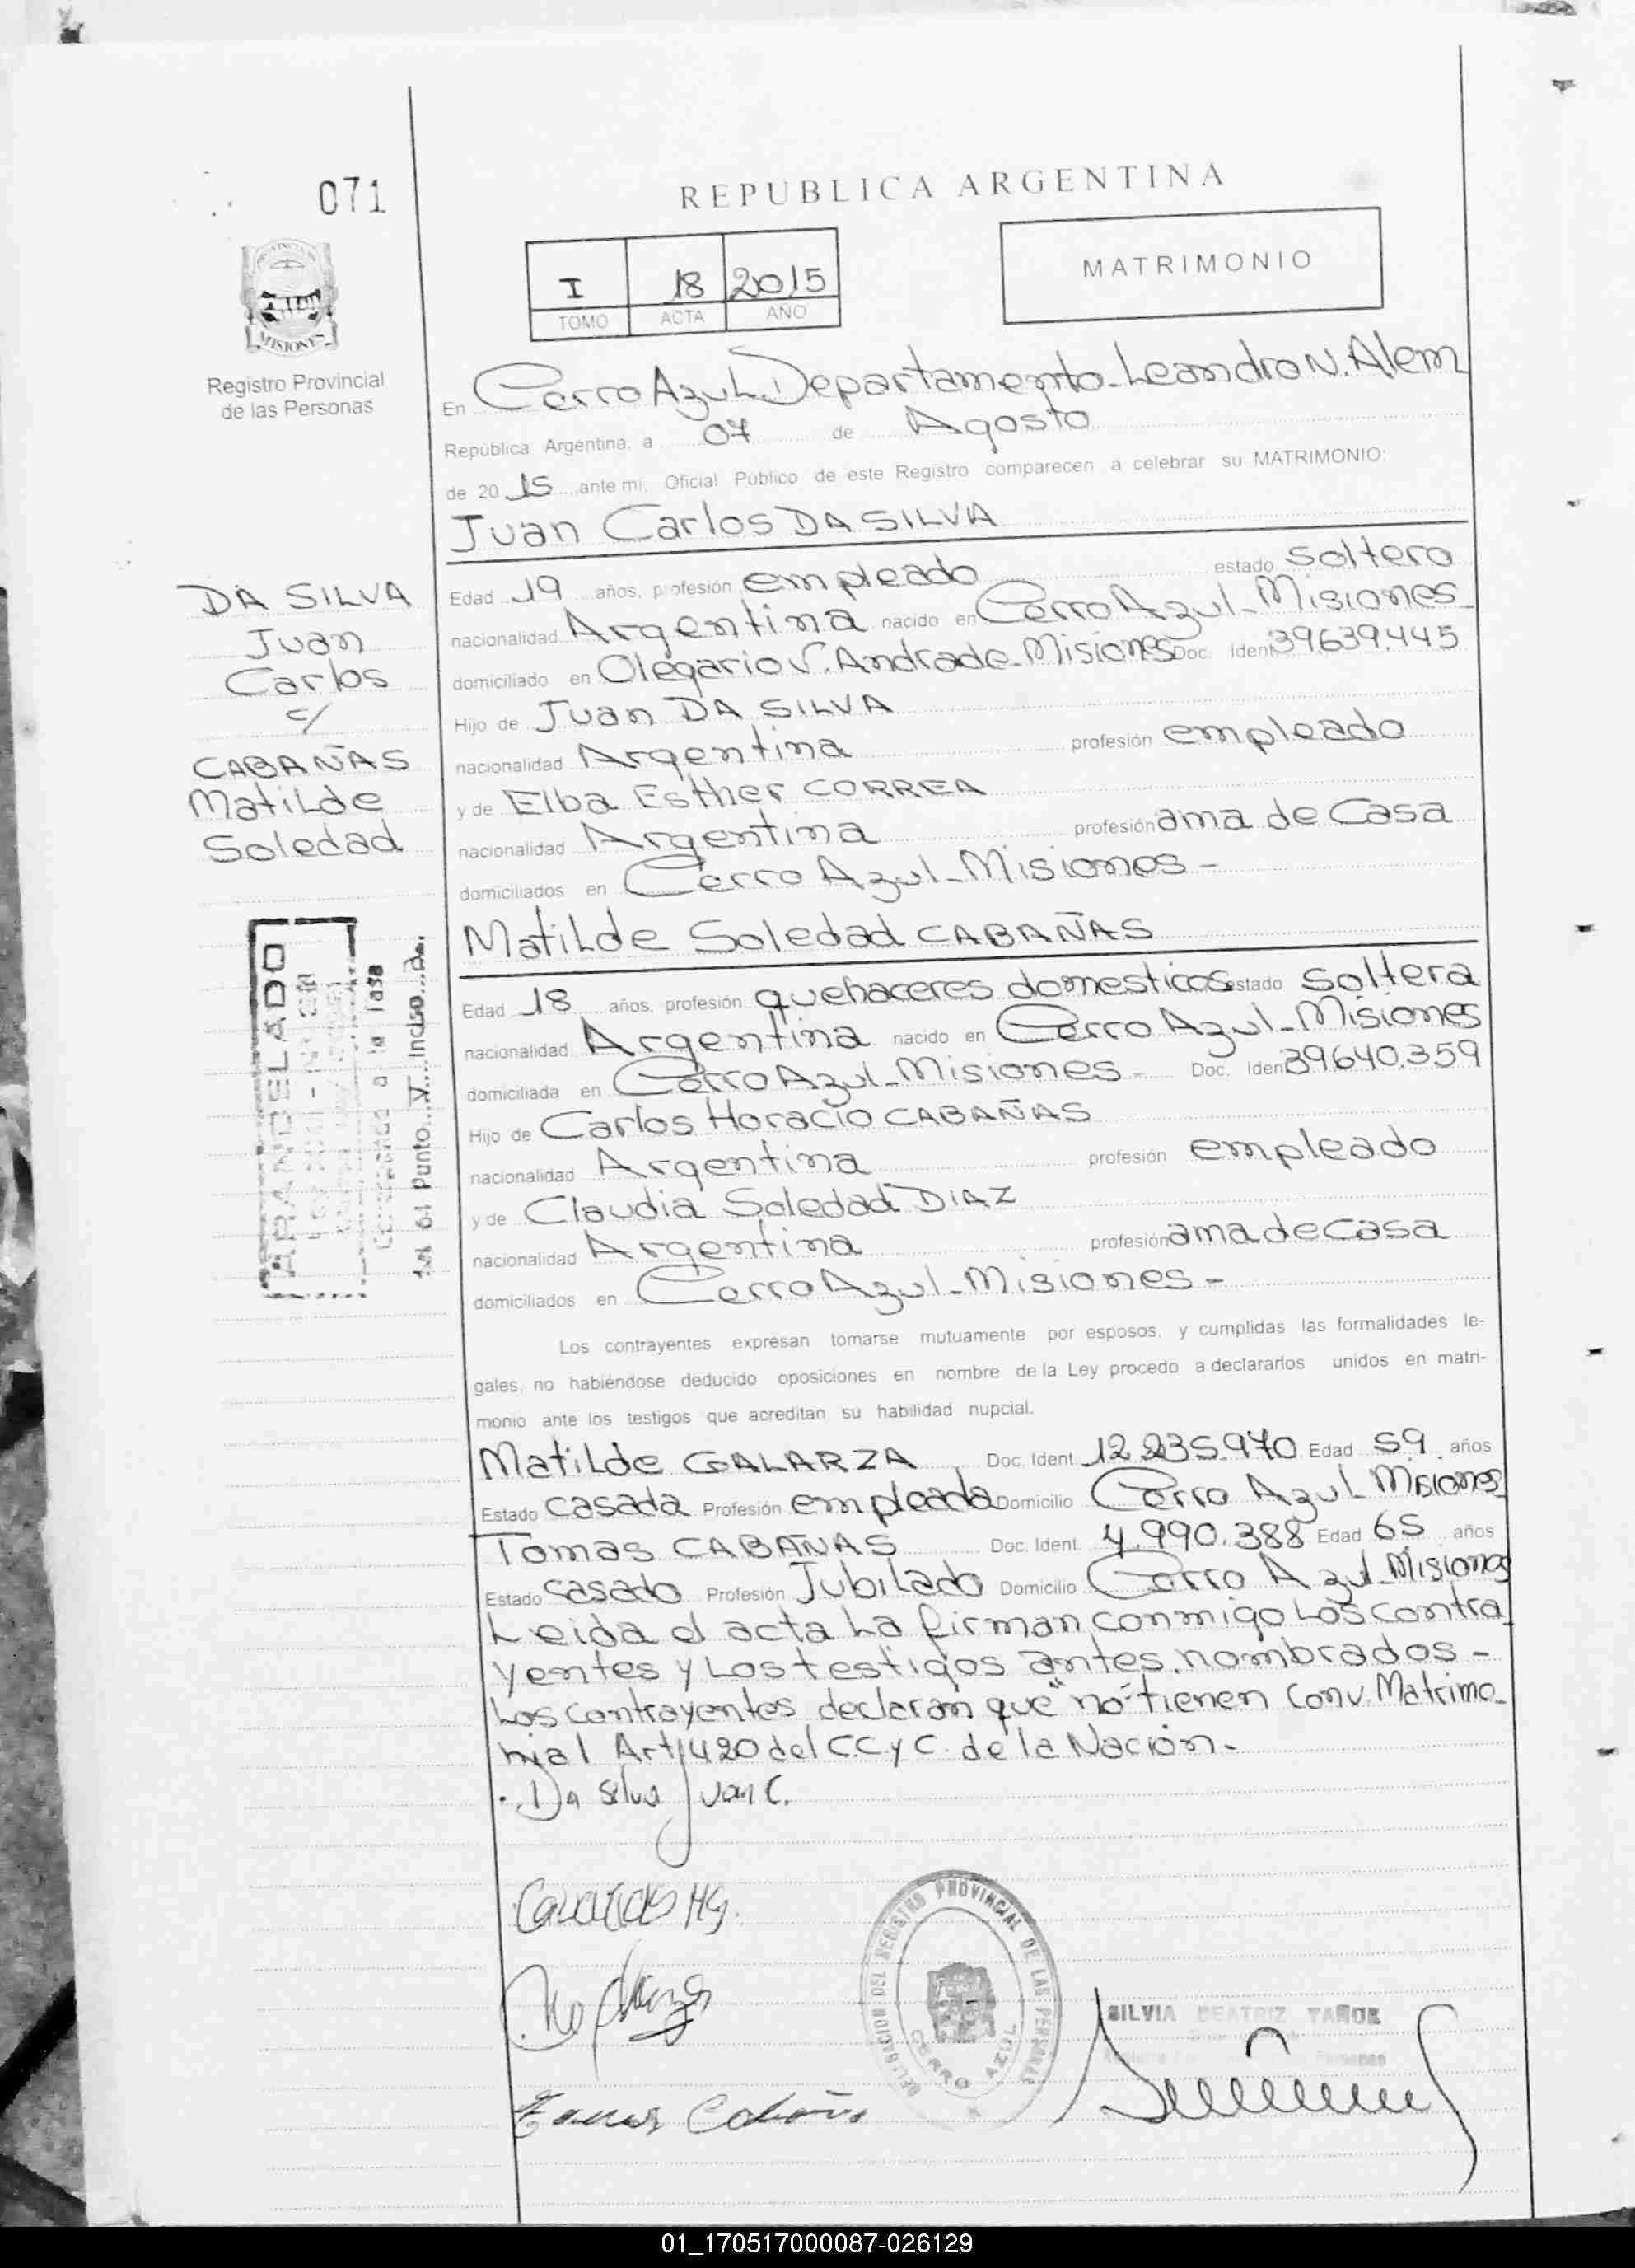 071
REPUBLICA ARGENTINA
I 18 2015
TOMO ACTA AÑO
MATRIMONIO
MISIONES
Registro Provincial
de las Personas
En Cerro Azul Departamento Leandro N. Alem
República Argentina, a 07 de Agosto
de 20 15 ante mi, Oficial Público de este Registro comparecen a celebrar su MATRIMONIO:
Juan Carlos DA SILVA
Edad 19 años, profesión empleado estado soltero
nacionalidad Argentina nacido en Cerro Azul - Misiones
domiciliado en Olegario V. Andrade - Misiones Doc. Ident 39.639.445
Hijo de Juan DA SILVA
nacionalidad Argentina profesión empleado
y de Elba Esther CORREA
nacionalidad Argentina profesión ama de Casa
domiciliados en Cerro Azul - Misiones -
DA SILVA
Juan
Carlos
c/
CABAÑAS
Matilde
Soledad
ARANCELADO
a la Tasa
61 Punto V Inciso a
Matilde Soledad CABAÑAS
Edad 18 años, profesión quehaceres domesticos estado soltera
nacionalidad Argentina nacido en Cerro Azul - Misiones
domiciliada en Cerro Azul - Misiones - Doc. Iden 39640.359
Hijo de Carlos Horacio CABAÑAS
nacionalidad Argentina profesión empleado
y de Claudia Soledad DIAZ
nacionalidad Argentina profesión ama de casa
domiciliados en Cerro Azul - Misiones -
Los contrayentes expresan tomarse mutuamente por esposos, y cumplidas las formalidades le-
gales, no habiéndose deducido oposiciones en nombre de la Ley procedo a declararlos unidos en matri-
monio ante los testigos que acreditan su habilidad nupcial.
Matilde GALARZA Doc. Ident 12.235.970 Edad 59 años
Estado casada Profesión empleada Domicilio Cerro Azul Misiones
Tomas CABAÑAS Doc. Ident. 4.990.388 Edad 65 años
Estado casado Profesión Jubilado Domicilio Cerro Azul - Misiones
Leida el acta la firman conmigo los contra
yentes y los testigos antes nombrados -
Los contrayentes declaran que "no" tienen Conv. Matrimo-
nial Art 420 del C.C y C. de la Nación -
Da silva Juan C.
DELEGACION DEL REGISTRO PROVINCIAL DE LAS PERSONAS
CERRO AZUL
SILVIA BEATRIZ
01_170517000087-026129